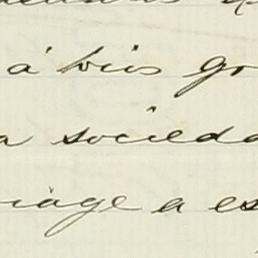 á bris go
a socieda
iage a es